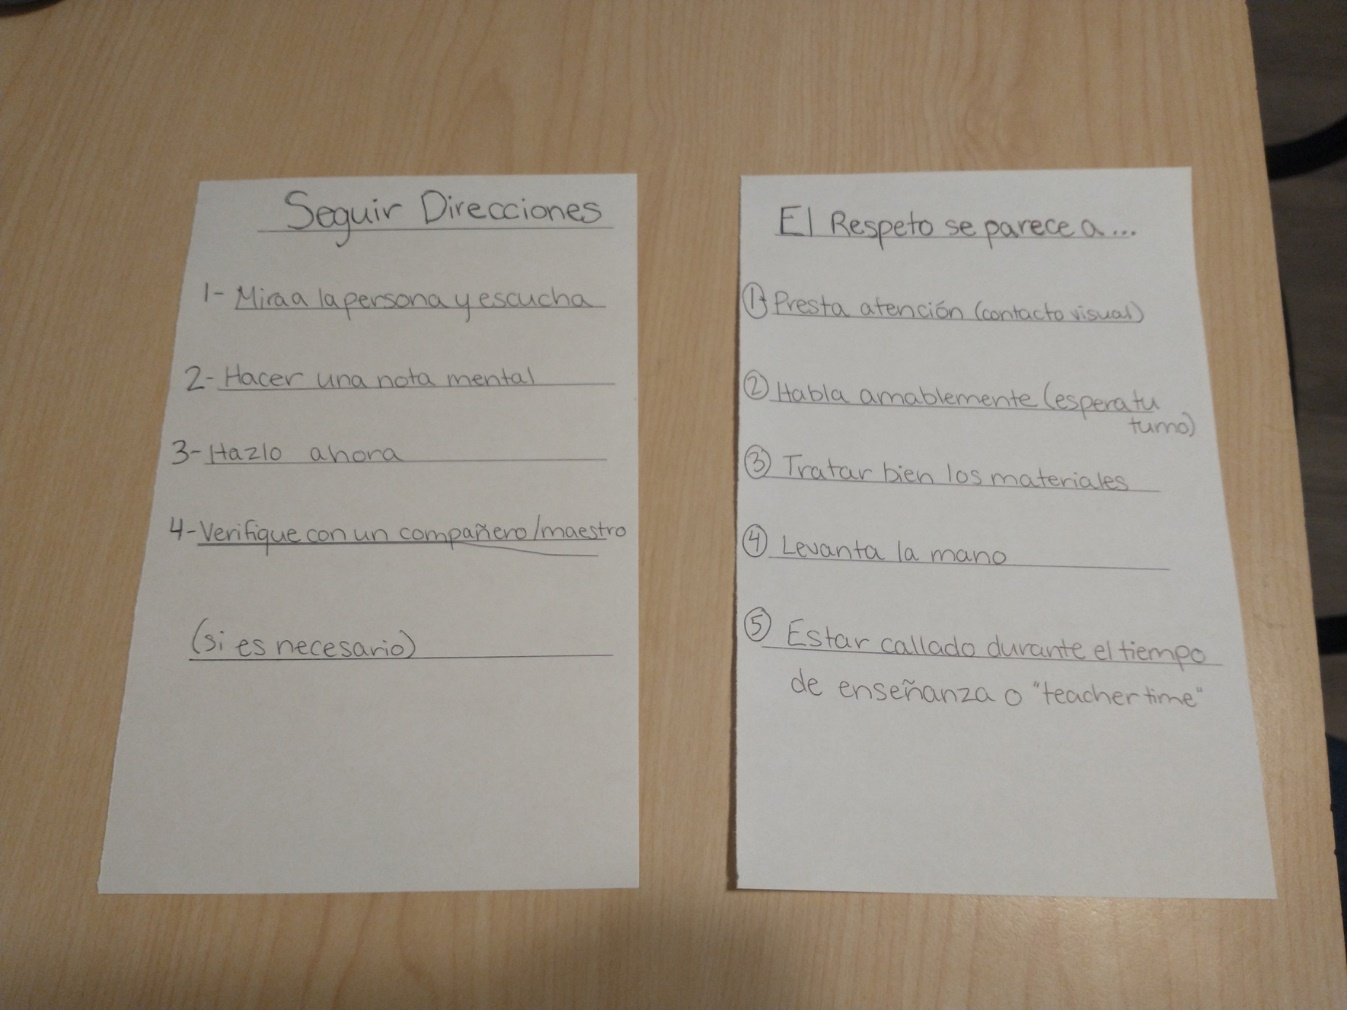 Seguir Direcciones
1- Mira a la persona y escucha
2- Hacer una nota mental
3- Hazlo ahora
4- Verifique con un compañero/maestro
(si es necesario)
El Respeto se parece a...
1- Presta atención (contacto visual)
2 Habla amablemente (espera tu
turno)
3 Tratar bien los materiales
4 Levanta la mano
5 Estar callado durante el tiempo
de enseñanza o "teacher time"